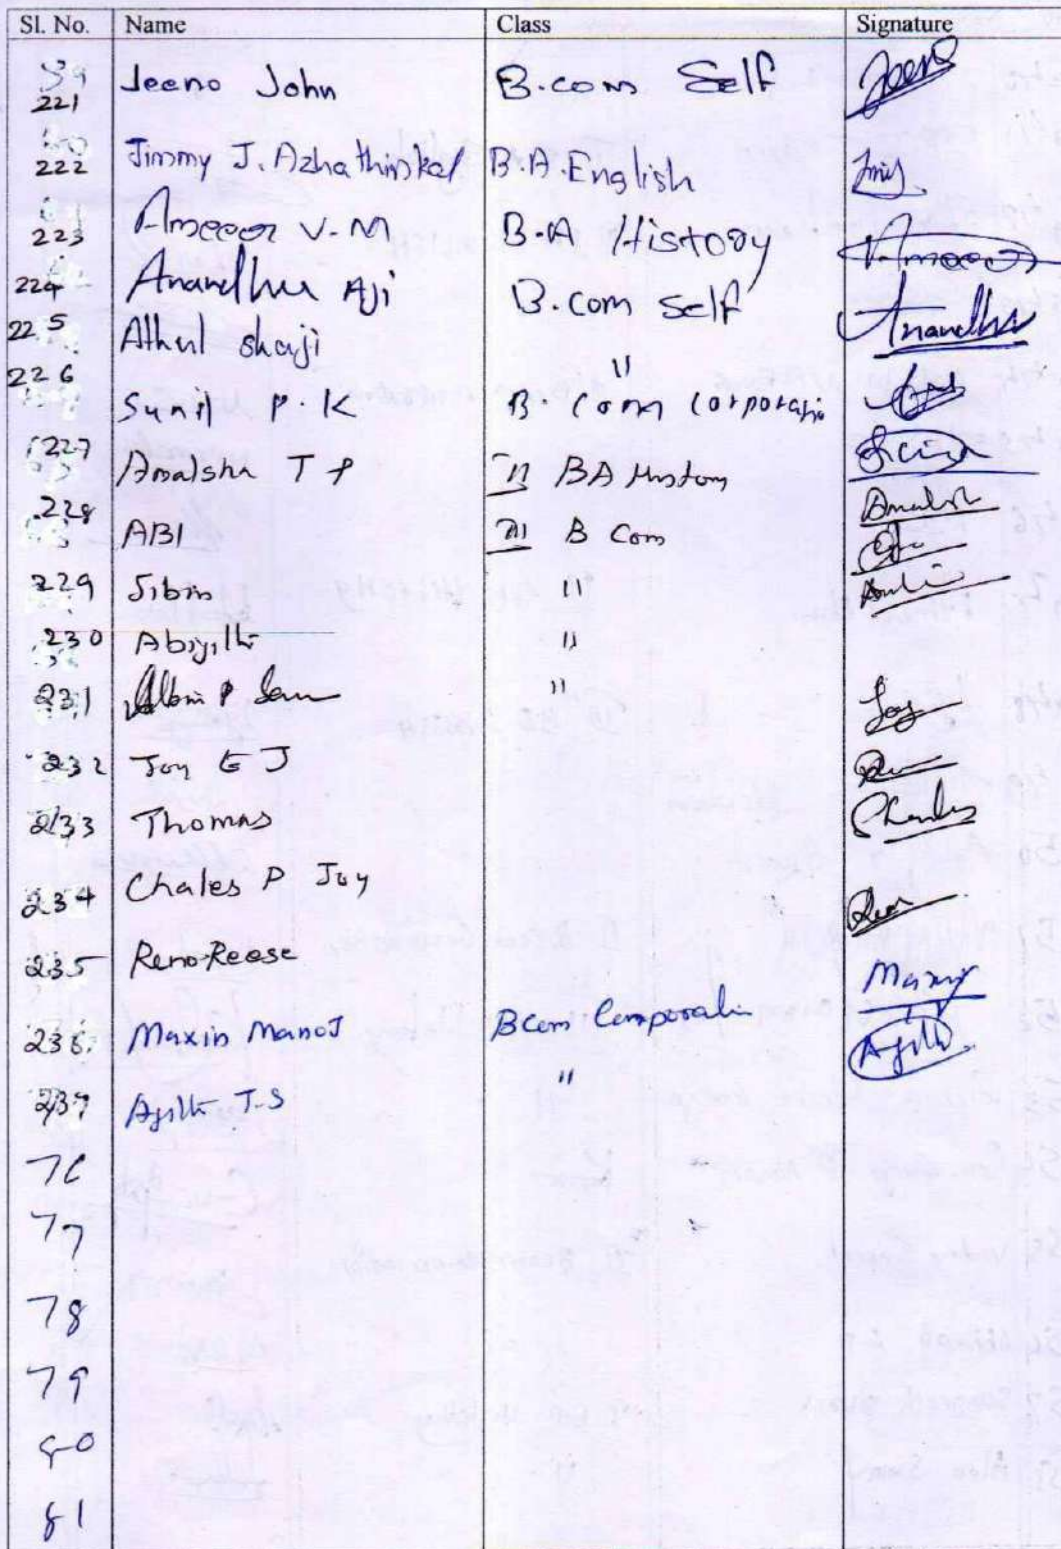 Sl. No. Name Class Signature
59
221 Jeeno John B.com Self Jeeno
222 Jimmy J. Azhathinkal B.A. English
223 Ameer V.M B.A History Ameer
224 Anandhu Aji B.com Self Anandhu
225 Athul Shaji "
226 Sunil P.K B. Com Corporatio
227 Amalshu T P II BA History
228 ABI III B Com
229 Sibin "
230 Abijith "
231 Albin P Sam "
232 Joy E J Joy
233 Thomas Charles
234 Chales P Joy
235 Reno Reese
236 Maxin Manoj Bcom Corporatio
237 Ajith T.S " Ajith
76
77
78
79
80
81